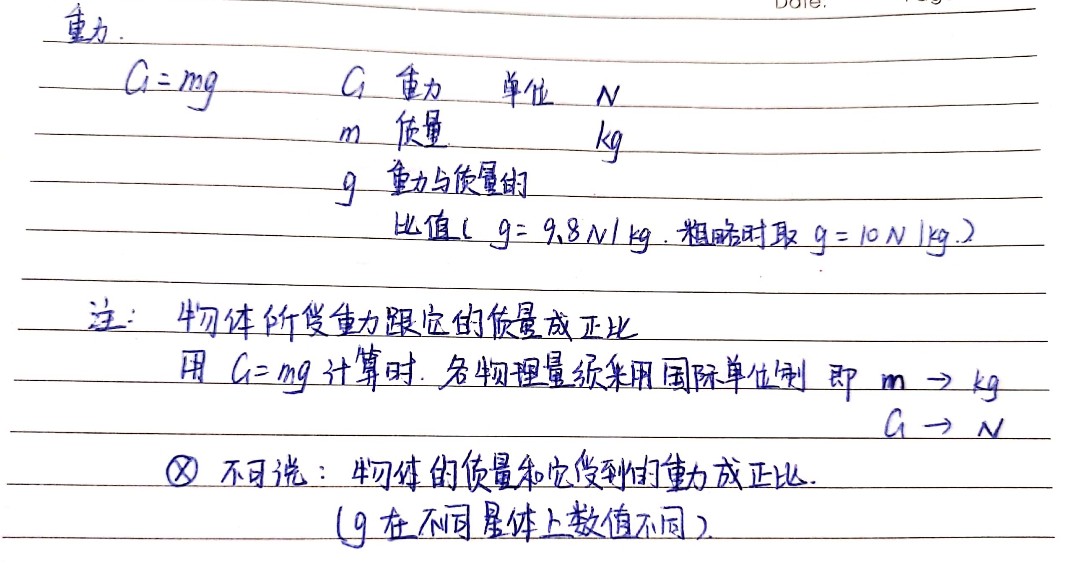 Date:
重力.
G=mg G 重力 单位 N
m 质量 kg
g 重力与质量的
比值( g=9.8N/kg.粗略时取 g=10N/kg.)
注: 物体所受重力跟它的质量成正比
用 G=mg 计算时.各物理量须采用国际单位制 即 m → kg
G → N
⊗ 不可说: 物体的质量和它受到的重力成正比.
(g 在不同星体上数值不同).